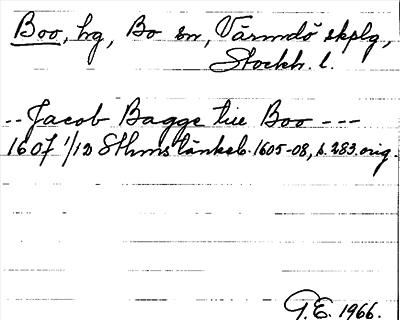 Boo, hg, Bo sn, Värmdö skplg,
Stockh. l.
-- Jacob Bagge till Boo ---
1607 1/12 Sthms tänkeb. 1605-08, s. 283 orig.
G.E. 1966.